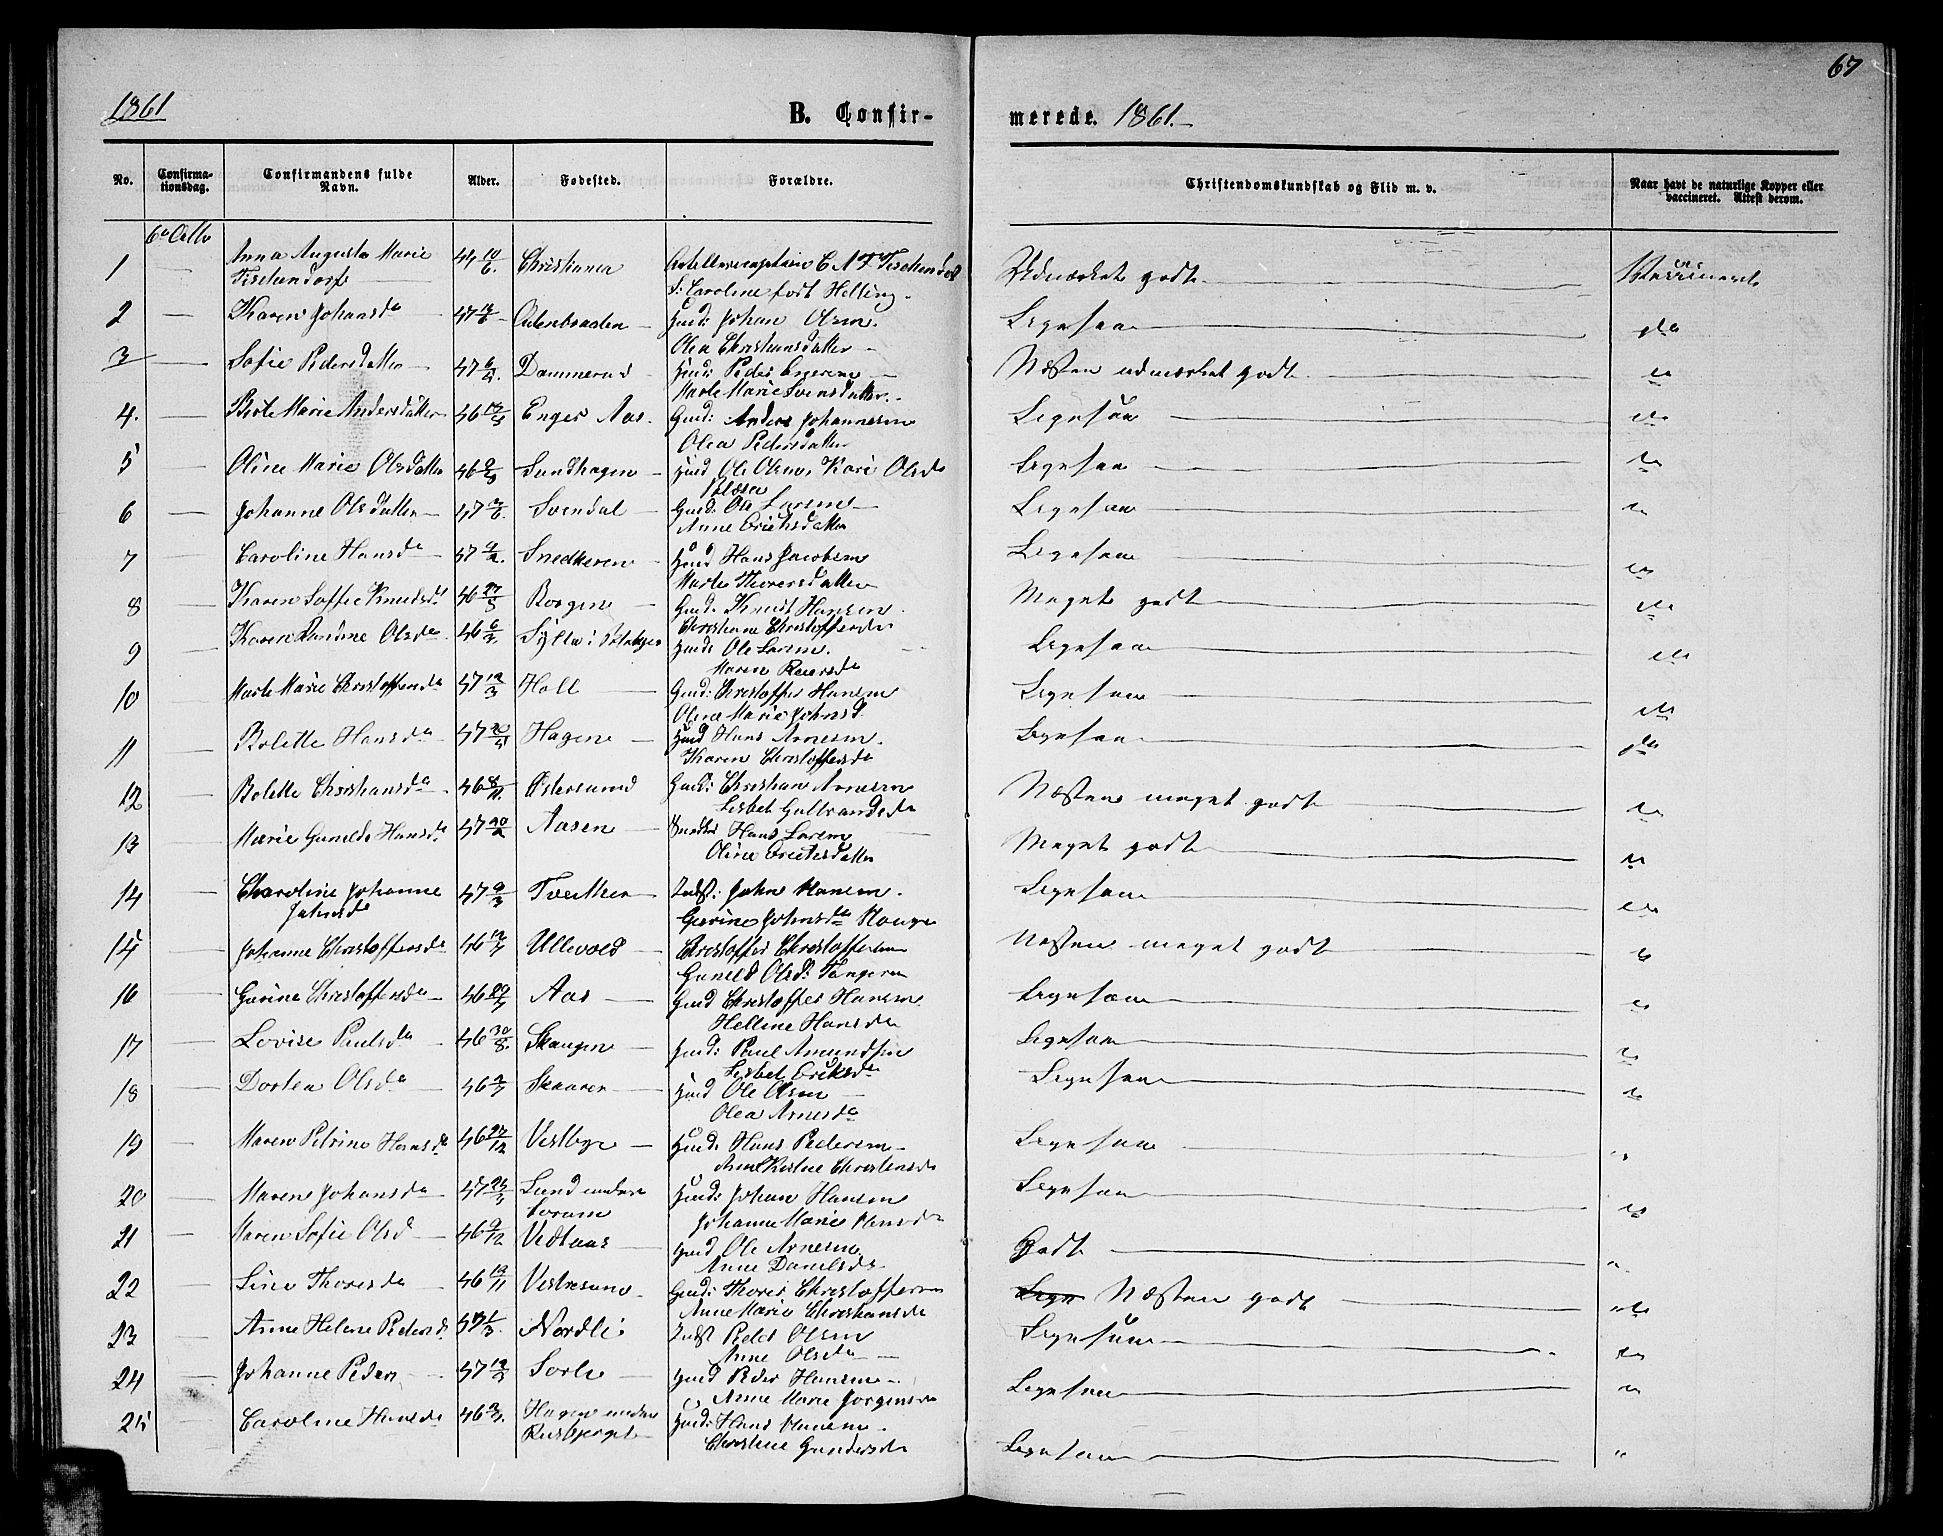 67
1861
B. Confir-
merede. 1861.
No.
Confirma-
tionsdag.
Confirmandens fulde
Navn.
Alder.
Fødested.
Forældre.
Christendomskundskab og Flid m. v.
Naar havt de naturlige Kopper eller
vaccineret. Attest derom.
6te Octbr
1 Anna Augusta Marie 44 10/6 Christiania
Tischendorf
d: Caroline født Helling
Udmærket godt
2 Karen Johansda 47 Gud: Johan Olsen
Olea Christiansdatter
Ligesaa do
3 Sofie Pedersdatter 47 6/4 Dammerud
Marte Marie Svensdatter
Næsten udmærket godt do
4. Berte Marie Andersdatter 46 Enger Aas. Gud: Anders Johannesen
Olea Pedersdatter
Ligesaa do
5 Oline Marie Olsdatter 46 Sundhagen Huud Ole Olsen, Kari Olsd
Ligesaa do
6 Johanne Olsdatter 47 Svendal Gud: Ole Larsen
Anne Erichsdatter
Ligesaa do
7 Caroline Hansda 47 Snedkeren Huud Hans Jacobsen
Marte Thoresdatter
Ligesaa do
8 Karen Soffie Knudsd 46 27/5 Borgen Gud. Knud Hansen
Christiane Christoffersda
Meget godt do
9 Karen Olsda 46 6/7 Huud: Ole Larsen
Maren Reiersda
Ligesaa do
10 Marte Marie Christoffersda 47 12/3 Holl Gud: Christoffer Hansen
Olina Marie Johnsd
Ligesaa do
11 Bolette Hansda 47 Hagen Huud Hans Arnesen
Karen Christoffersda
Ligesaa do
12 Bolette Christiansda 46 8/11 Østersund Gud: Christian Arnesen
Lisbet Gulbrandsda
Næsten meget godt do
13 Marie Gunilde Hansda 47 20/2 Aasen Hans Larsen
Oline Erichsdatter
Meget godt do
14 Charoline Johanne 47 9/3 Indst: John Hansen
Johnsda Gurine Johnsda Hauge
Ligesaa do
15 Johanne Christoffersda 46 Ullevold Christoffer Christoffersen
Gunild Olsd: Tangen
Næsten meget godt do
16 Gurine Christoffersda 46 Aas Gud Christoffer Hansen
Helline Hansda
Ligesaa do
17 Lovise Paulsda 46 30/8 Skaugen Huud: Paul Amundsen
Lisbet Eriksda
Ligesaa do
18 Dortea Olsda 46 Skaaren Huud Ole Olsen
Olea Arnesda
Ligesaa do
19 Maren Petrine Hansda 46 27/12 Vestbye Huud: Hans Pedersen
Anne Kirstine Christensda
Ligesaa "
20 Maren Johansda 47 Lund under Huud: Johan Hansen
Johanne Marie Hansda
Ligesaa do
21 Maren Sofie Olsd 46 9/12 Vedtaas Huud Ole Arnesen
Anne Danielsda
Godt "
22 Line Thoresda 46 12/11 Vestresund Gud: Thores Christoffersen
Anne Marie Christiansda
Næsten godt do
23 Anne Helene Pedersd. 47 1/3 Nordli Indst Peder Olsen
Anne Olsda
Ligesaa do
24 Johanne Peders 47 Sorli Huud Peder Hansen
Anne Marie Jørgensda
Ligesaa "
25 Caroline Hansda 46 Hagen under Huud: Hans Hansen
Christine Gundersda
Ligesaa "